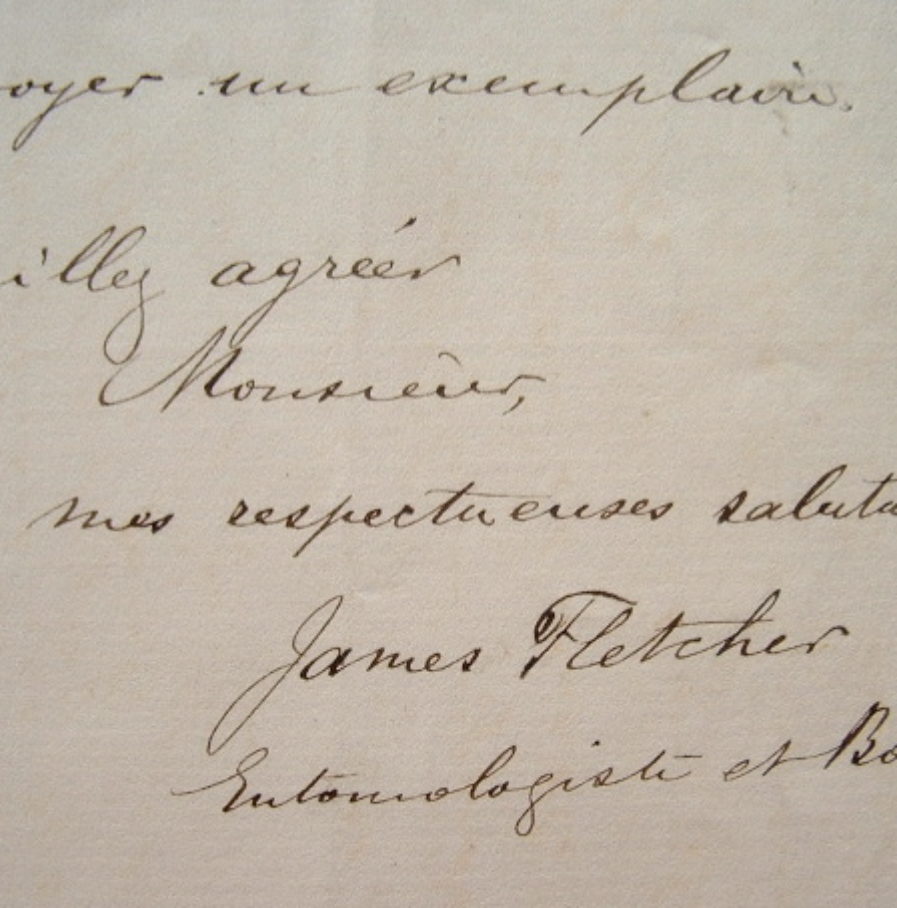 oyer un exemplaire.
illez agréér
Monsieur,
mes respectueuses saluta
James Fletcher
Entomologiste et Bo